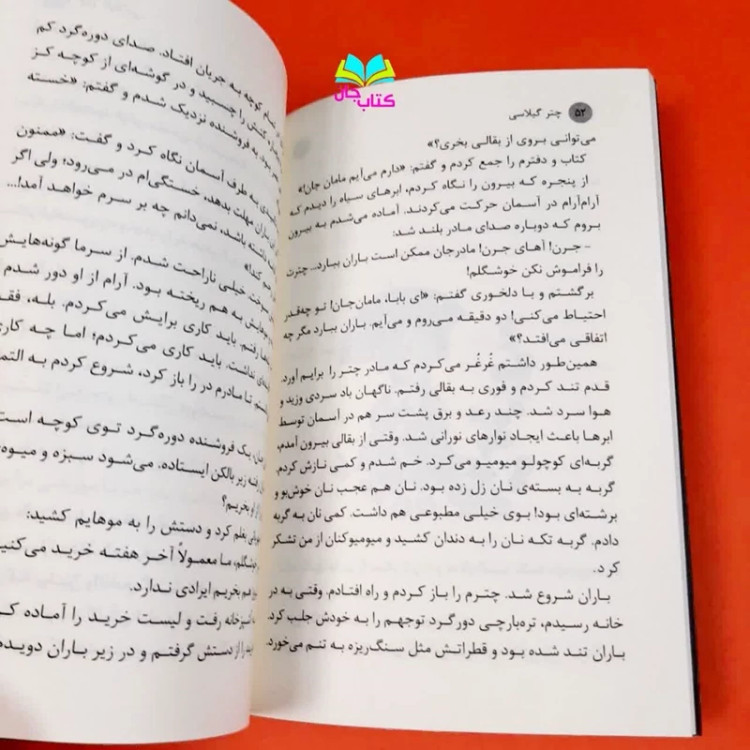 کتاب جان
۵۲ چتر گیلاسی
می‌توانی بروی از بقالی بخری؟»
کتاب و دفترم را جمع کردم و گفتم: «دارم می‌آیم مامان جان!»
از پنجره که بیرون را نگاه کردم، ابرهای سیاه را دیدم که
آرام‌آرام در آسمان حرکت می‌کردند. آماده می‌شدم به بیرون
بروم که دوباره صدای مادر بلند شد:
- جرن! آهای جرن! مادرجان ممکن است باران ببارد... چترت
را فراموش نکن خوشگلم!
برگشتم و با دلخوری گفتم: «ای بابا، مامان‌جان! تو چه‌قدر
احتیاط می‌کنی! دو دقیقه می‌روم و می‌آیم. باران ببارد مگر چه
اتفاقی می‌افتد؟»
همین‌طور داشتم غُرغُر می‌کردم که مادر چتر را برایم آورد.
قدم تند کردم و فوری به بقالی رفتم. ناگهان باد سردی وزید و
هوا سرد شد. چند رعد و برق پشت سر هم در آسمان توسط
ابرها باعث ایجاد نوارهای نورانی شد. وقتی از بقالی بیرون آمدم،
گربه‌ای کوچولو میومیو می‌کرد. خم شدم و کمی نازش کردم.
گربه به بسته‌ی نان زل زده بود. نان هم عجب نان خوش‌بو و
برشته‌ای بود! بوی خیلی مطبوعی هم داشت. کمی نان به گربه
دادم. گربه تکه نان را به دندان کشید و میومیوکنان از من تشکر
کرد.
باران شروع شد. چترم را باز کردم و راه افتادم. وقتی به در
خانه رسیدم، تره‌بارچی دورگرد توجهم را به خودش جلب کرد.
باران تند شده بود و قطراتش مثل سنگ‌ریزه به تنم می‌خورد.
کوچه به جریان افتاد. صدای دوره‌گرد کم
کتش را چسبید و در گوشه‌ای از کوچه کز
به فروشنده نزدیک شدم و گفتم: «خسته
به طرف آسمان نگاه کرد و گفت: «ممنون
باران مهلت بدهد، خستگی‌ام در می‌رود؛ ولی اگر
داشته باشد، نمی‌دانم چه بر سرم خواهد آمد!...
کند!»
خیلی ناراحت شدم. از سرما گونه‌هایش
به هم ریخته بود. آرام از او دور شدم
رفتم. باید کاری برایش می‌کردم. بله، فقـ
نداشت. باید کاری می‌کردم؛ اما چه کاری
تا مادرم در را باز کرد، شروع کردم به التمـ
یک فروشنده دوره‌گرد توی کوچه است
زیر بالکن ایستاده. می‌شود سبزه و میوه‌
بخریم؟
بغلم کرد و دستش را به موهایم کشید:
ما معمولاً آخر هفته خرید می‌کنیـ
هم بخریم ایرادی ندارد.
رفت و لیست خرید را آماده کر
را از دستش گرفتم و در زیر باران دویدم